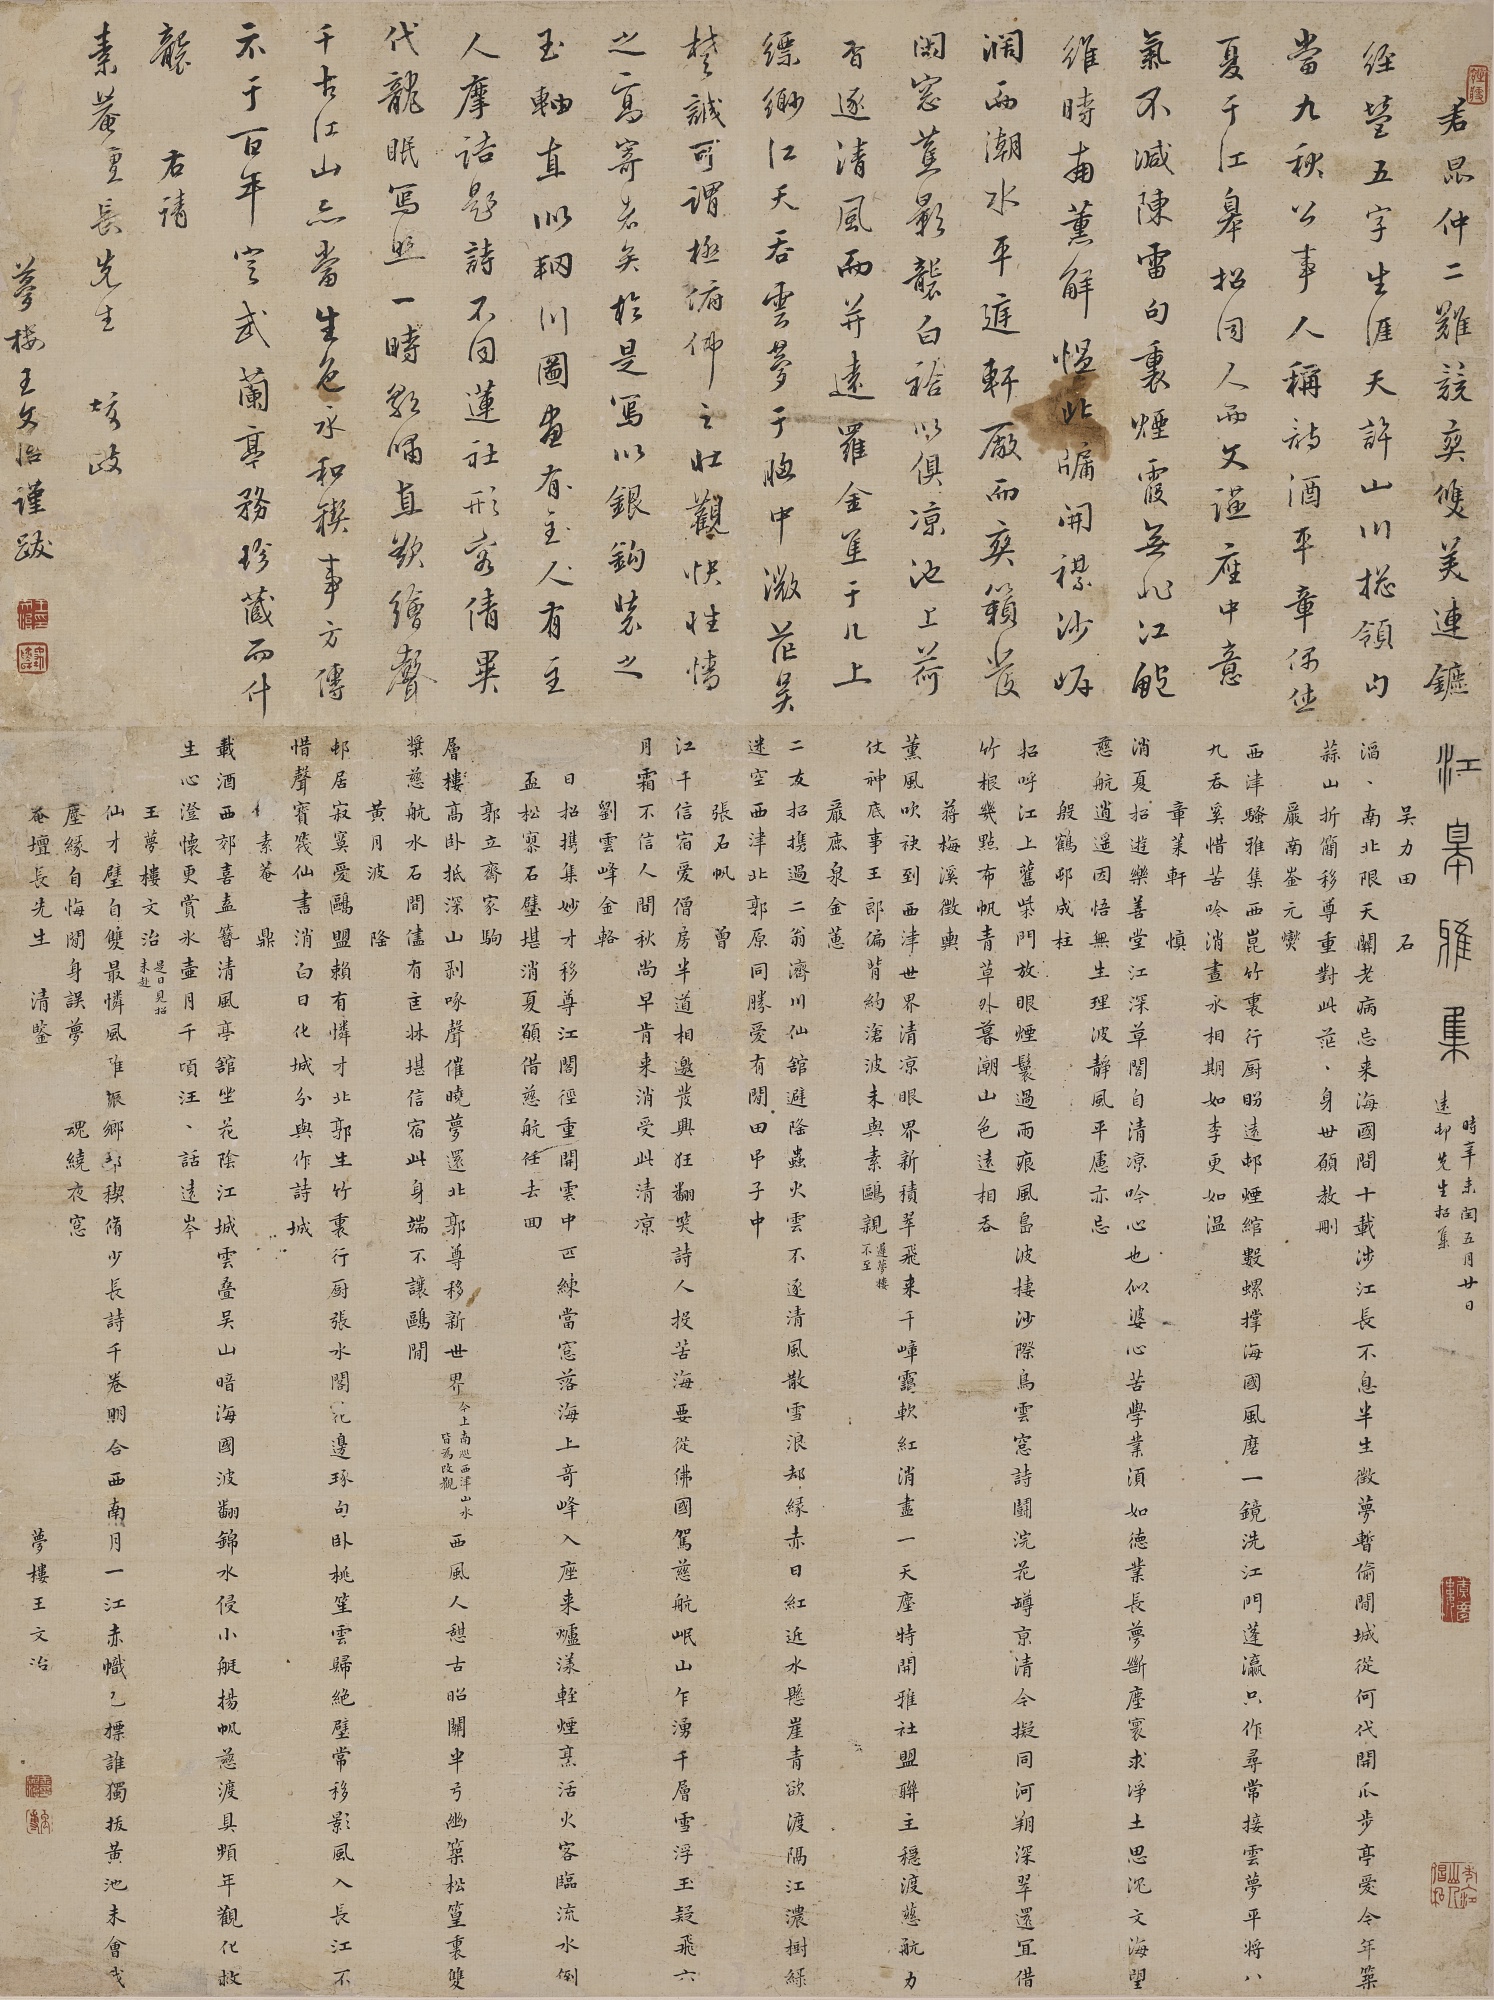 若昆仲二難競爽雙美連鑣
經營五字生涯天許山川摠領山
當九秋公事人稱詩酒平章偶值
夏于江皋招同人而文讌座中意
氣不減陳雷句裏煙霞無非江鮑
維時南薰解慍北牖開襟沙岸
濶而潮水平遊軒厰而爽籟發
閑窓蕉影襲白袷以俱凉池上荷
香逐清風而并遠羅金罍于几上
縹緲江天吞雲夢于胸中微茫吳
楚誠可謂極俯仰之壯觀快性情
之高寄者矣於是寫以銀鈎裝之
玉軸直似輞川圖畫有主人有主
人摩詰題詩不同蓮社形容倩異
代龍眠寫照一時歌嘯直欲繪聲
千古江山亦當生色永和禊事方傳
示于百年定武蘭亭務珍藏而什
襲 右請
素菴重長先生 教政
夢樓王文治謹跋
江皋雅集 時辛未閏五月廿日
遠邨先生招集
吳力田 石
滔、南北限天關老病忘来海國間十載涉江長不息半生徵夢暫偷閒城從何代開瓜步亭愛今年築
蒜山折簡移尊重對此茫、身世願教刪
嚴南崟元爕
西津騷雅集西崑竹裏行厨盼遠邨煙綰數螺撐海國風磨一鏡洗江門蓬瀛只作尋常接雲夢平將八
九吞奚惜苦吟消晝永相期如李更如溫
章萊軒 慎
消夏招遊樂善堂江深草閣自清凉吟心也似婆心苦學業湏如德業長夢斷塵寰求凈土思沉文海望
慈航逍遥因悟無生理波靜風平慮亦忘
殷鶴邨成柱
招呼江上舊柴門放眼煙鬟過雨痕風島波棲沙際鳥雲窓詩鬪浣花罇京清今擬同河朔深翠還宜借
竹根幾點布帆青草外暮潮山色遠相吞
蒋梅溪徵輿
薰風吹袂到西津世界清凉眼界新積萃飛来千嶂靄軟紅消盡一天塵特開雅社盟聯主穩渡慈航力
仗神底事王郎偏背約滄波未與素鷗親 遲夢樓不至
嚴庶泉金蕙
二友招携過二翁濟川仙舘避隆蟲火雲不逐清風散雪浪却緣赤日紅近水懸崖青欲渡隔江濃樹綠
迷空西津北郭原同勝愛有閒田甲子中
張石帆 曾
江干信宿愛僧房半道相邀發興狂翻笑詩人投苦海要從佛國駕慈航岷山乍湧千層雪浮玉疑飛六
月霜不信人間秋尚早肯来消受此清凉
劉雲峰金輅
日招携集妙才移尊江閣徑重開雲中匹練當窓落海上竒峰入座来爐漾輕煙烹活火客臨流水倒
盃松寮石壁堪消夏願借慈航任去回
郭立齋家駒
層樓高卧抵深山剥啄聲催曉夢還北郭尊移新世界 今上南廵西津山水皆為改觀 西風人憩古昭關半弓幽築松篁裏雙
槳慈航水石間儘有匡牀堪信宿此身端不讓鷗閒
黄月波 隆
邨居寂寞愛鷗盟賴有憐才北郭生竹裏行厨張水閣花邊琢句卧桃笙雲歸絶壁常移影風入長江不
惜聲賓篋仙書消白日化城分與作詩城
素菴 鼎
載酒西郊喜盍簪清風亭舘坐花陰江城雲叠吴山暗海國波翻錦水侵小艇揚帆慈渡具頻年觀化救
生心澄懷更賞氷壺月千頃汪、話遠岑
王夢樓文治 是日見招未赴
仙才璧自雙最憐風雅振鄉邦禊脩少長詩千卷朋合西南月一江赤幟已標誰獨拔黄池未會我
塵緣自悔閒身誤夢 魂繞夜窓
菴壇長先生 清鑒
夢樓王文治